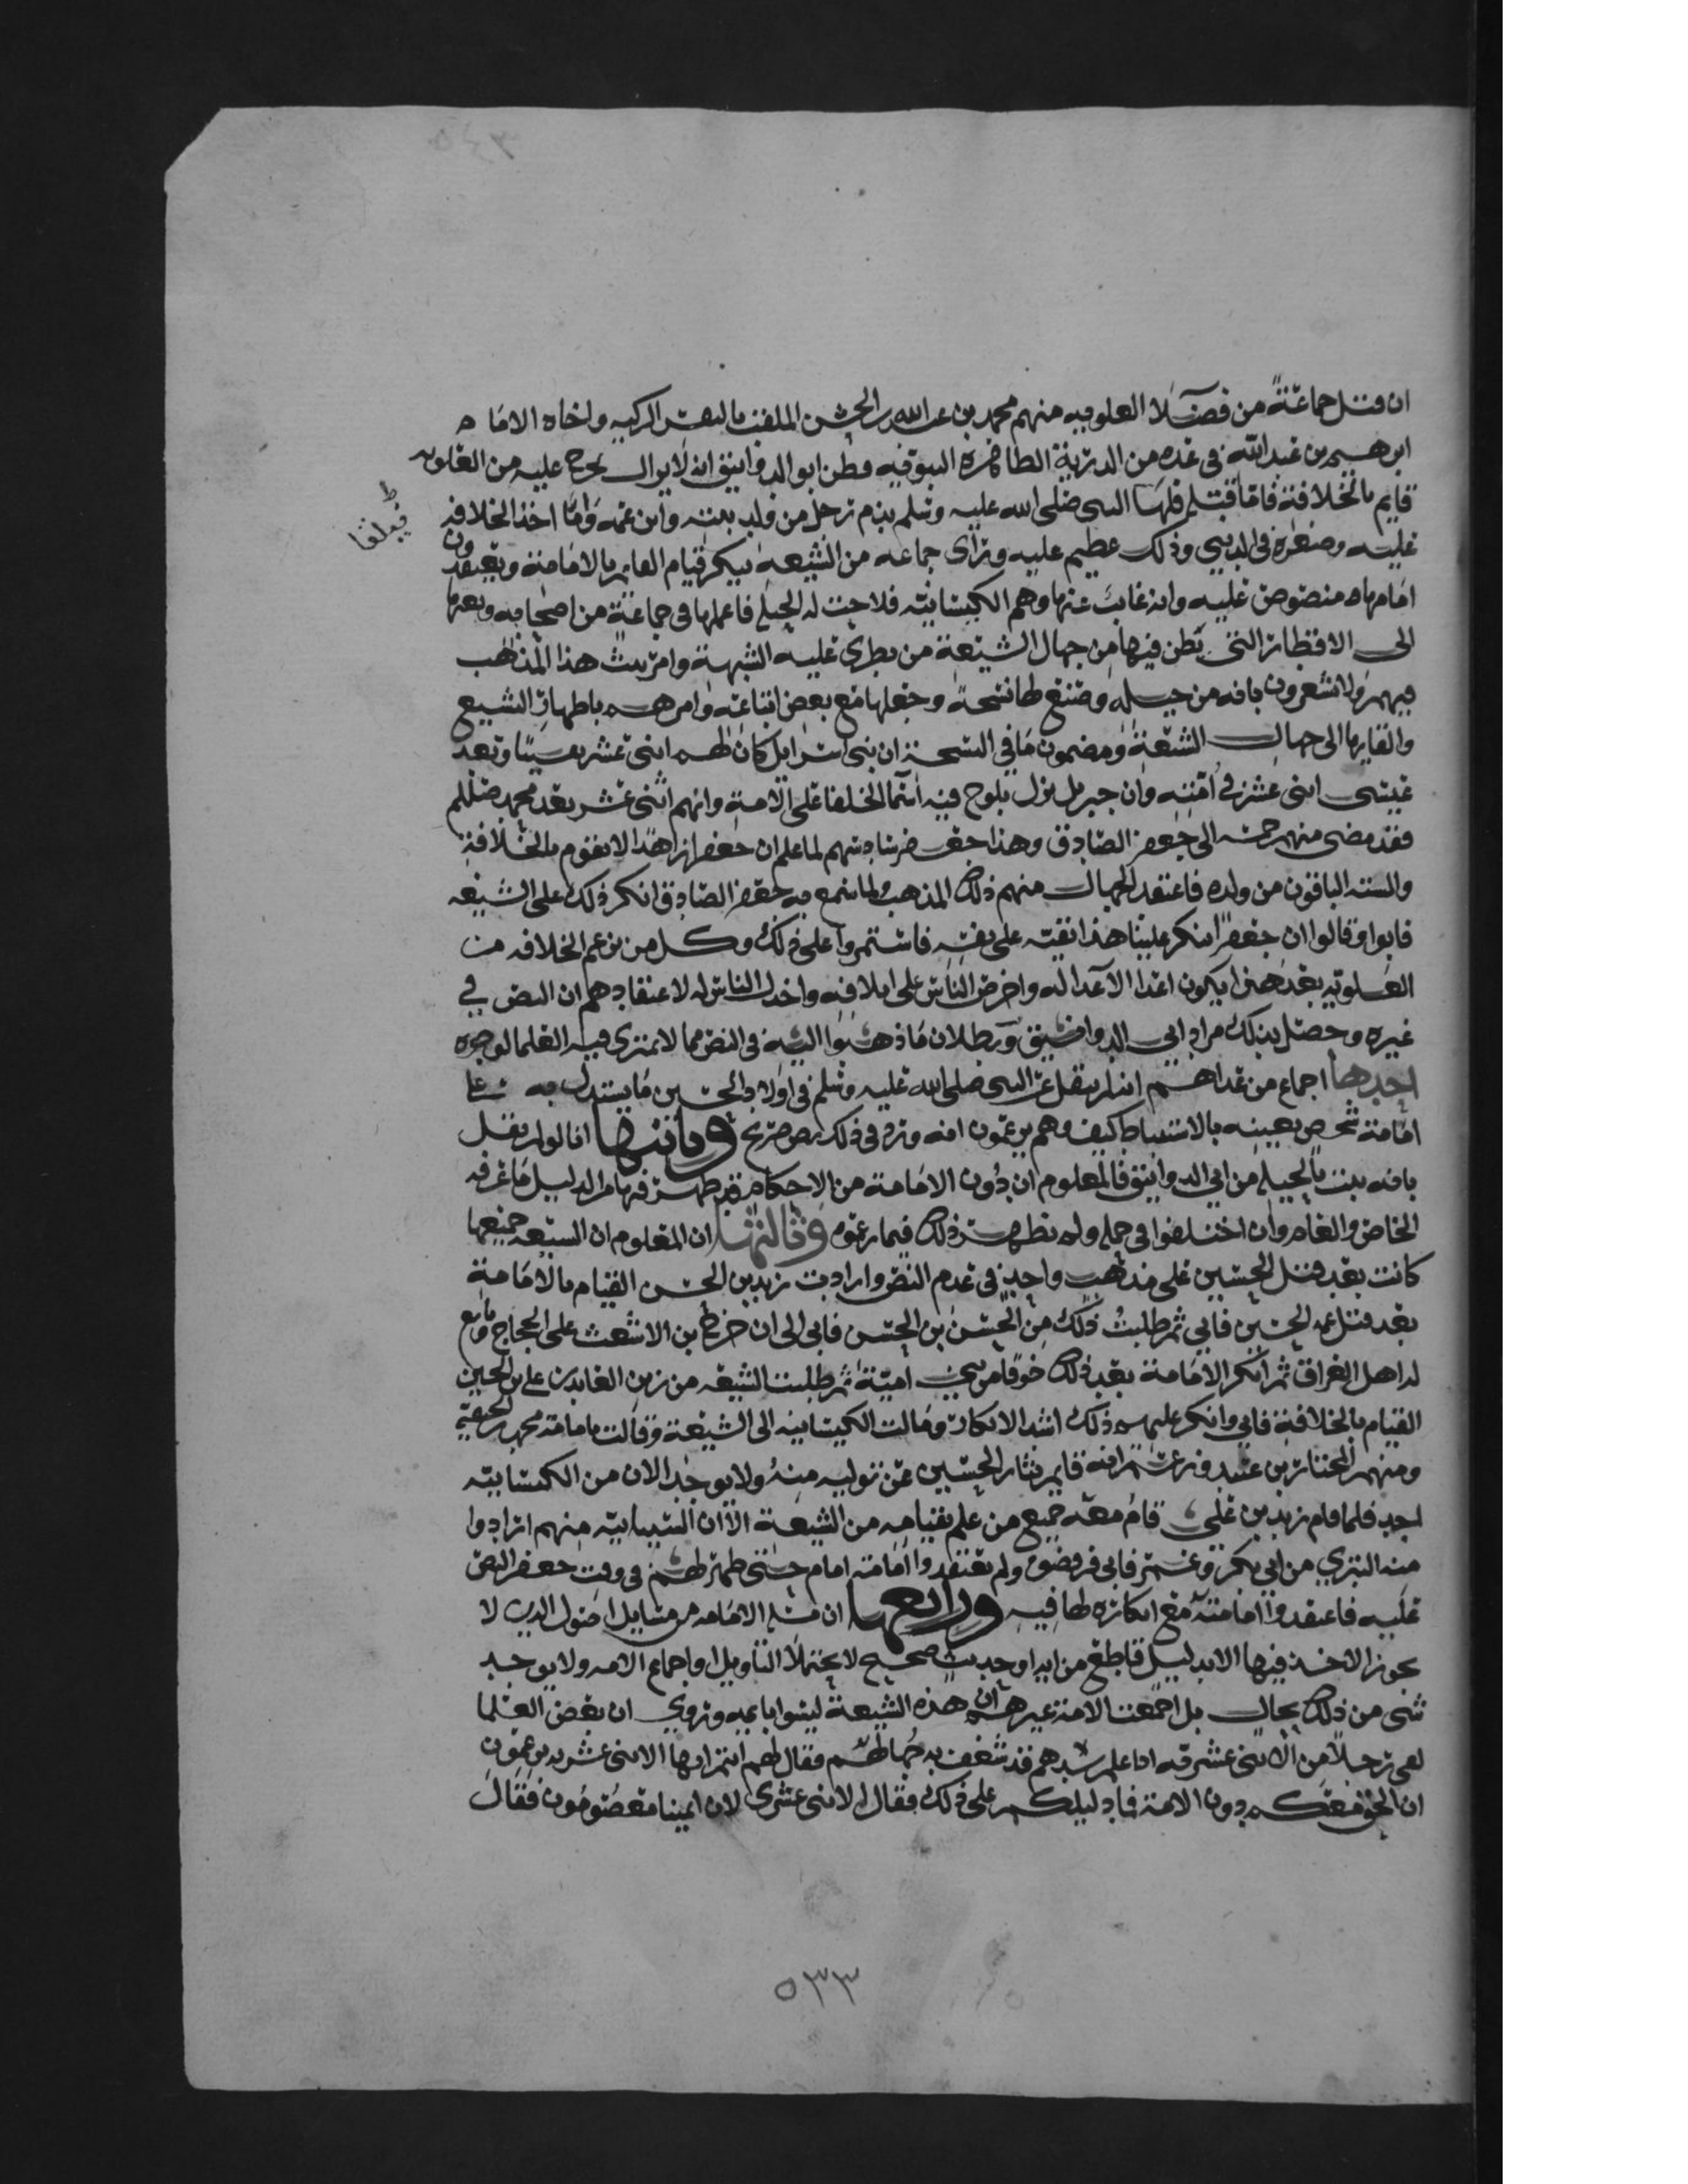 ان قتل جماعة من فضلا العلويه منهم محمد بن عبد الله بن الحسن الملقب بالنفس الزكيه واخاه الامام
ابرهيم بن عبد الله في عده من الذرية الطاهره النبويه وظن ابو الدوانيق انه لا يزال يخرج عليه من العلويه
قايم بالخلافة فاما قتلهم فلهيا النبي صلى الله عليه وسلم بدم رجل من ولد بنته وابن عمه واما اخذ الخلافه
فيعلقا
عليه وصغره في الدنيي وذلك عظيم عليه وراى جماعه من الشيعه ينكر قيام القايم بالامامة ويعتقدون
امامها منصوص عليه وانه غايب عنها وهم الكيسانيه فلاحت له الحيله فاعملها في جماعة من اصحابه وبعثها
الى الاقطار التي يظن فيها من جهال الشيعة من يطرى عليه الشبهة وامر ببث هذا المذهب
فيهم ولا يشعرون بانه من حيله وصنع لها نسخة وجعلها مع بعض اتباعه وامرهم باظهار التشيع
والقايها الى جهال الشيعة ومضمون ما في النسخة ان بني اسرايل كان لهم اثني عشر نقيبا وبعد
عيسى اثني عشر في امته وان جبريل نزل بلوح فيه اسما الخلفا على الامة وانهم اثني عشر بعد محمد صللم
فقد مضى منهم خمسه الى جعفر الصادق وهذا جعفر سادسهم لما علم ان جعفرا زاهدا لا يقوم بالخلافة
والسته الباقون من ولده فاعتقد الجهال منهم ذلك المذهب ولما سمع به جعفر الصادق انكر ذلك على الشيعه
فابوا وقالوا ان جعفرا ينكر علينا هذا تقية على نفسه فاستمروا على ذلك وكل من زعم الخلافه من
العلويه بعد هذا يكون اعدا الاعدا له واحرص الناس على اتلافه واخذل الناس له لاعتقادهم ان النص في
غيره وحصل بذلك مراد ابي الدوانيق وبطلان ما ذهبوا اليه في النص مما لا يمتري فيه العلما لوجوه
احدها اجماع من عداهم انه لم ينقل عن النبي صلى الله عليه وسلم في اولاد الحسين ما يستدل به على
امامة شخص بعينه بالاستنباط كيف وهم يزعمون انه ورد في ذلك نص صريح وثانيها انا لو لم نقل
بانه بنت بالحيله من ابي الدوانيق فالمعلوم ان دون الامامة من الاحكام قد ظهر فيها من الدليل ما عرفه
الخاص والعام وان اختلفوا في حمله ولم يظهر ذلك فيما زعموه وثالثها ان المعلوم ان الشيعه جميعها
كانت بعد قتل الحسين على مذهب واحد في عدم النص وارادت زيد بن الحسن القيام بالامامة
بعد قتل عمه الحسين فابى ثم طلبت ذلك من الحسن بن الحسن فابى الى ان خرج بن الاشعث على الحجاج وبايع
له اهل العراق ثم انكر الامامة بعد ذلك خوفا من بني امية ثم طلبت الشيعه من زين العابدين علي بن الحسين
القيام بالخلافة فابى وانكر عليهم ذلك اشد الانكار ومالت الكيسانيه الى الشيعة وقالت بامامة محمد بن الحنفيه
ومنهم المختار بن عبيد وزعم انه قايم بثار الحسين عن توليه منه ولا يوجد الان من الكيسانيه
احد فلما قام زيد بن علي قام معه جميع من علم بقيامه من الشيعة الا ان السبابيه منهم ارادوا
منه التبري من ابي بكر وعمر فابى فرفضوه ولم يعتقدوا امامة امام حتى ظهر لهم في وقت جعفر النص
عليه فاعتقدوا امامته مع انكاره لها فيه ورابعها ان مسله الامامه من مسايل اصول الدين لا
يجوز الاخذ فيها الا بدليل قاطع من ايه او حديث صحيح لا يحتملا التاويل او اجماع الامه ولا يوجد
شي من ذلك بحال بل اجمعت الامة غيرهم ان هذه الشيعة ليسوا بايمه وروي ان بعض العلما
لقي رجلا من الاثني عشريه اذا علم رشدهم قد شغف به جهالهم فقال لهم انتم ايها الاثني عشريه تزعمون
ان الحق معكم دون الامة فما دليلكم على ذلك فقال الاثني عشري لان ايمتنا معصومون فقال
٥٣٣